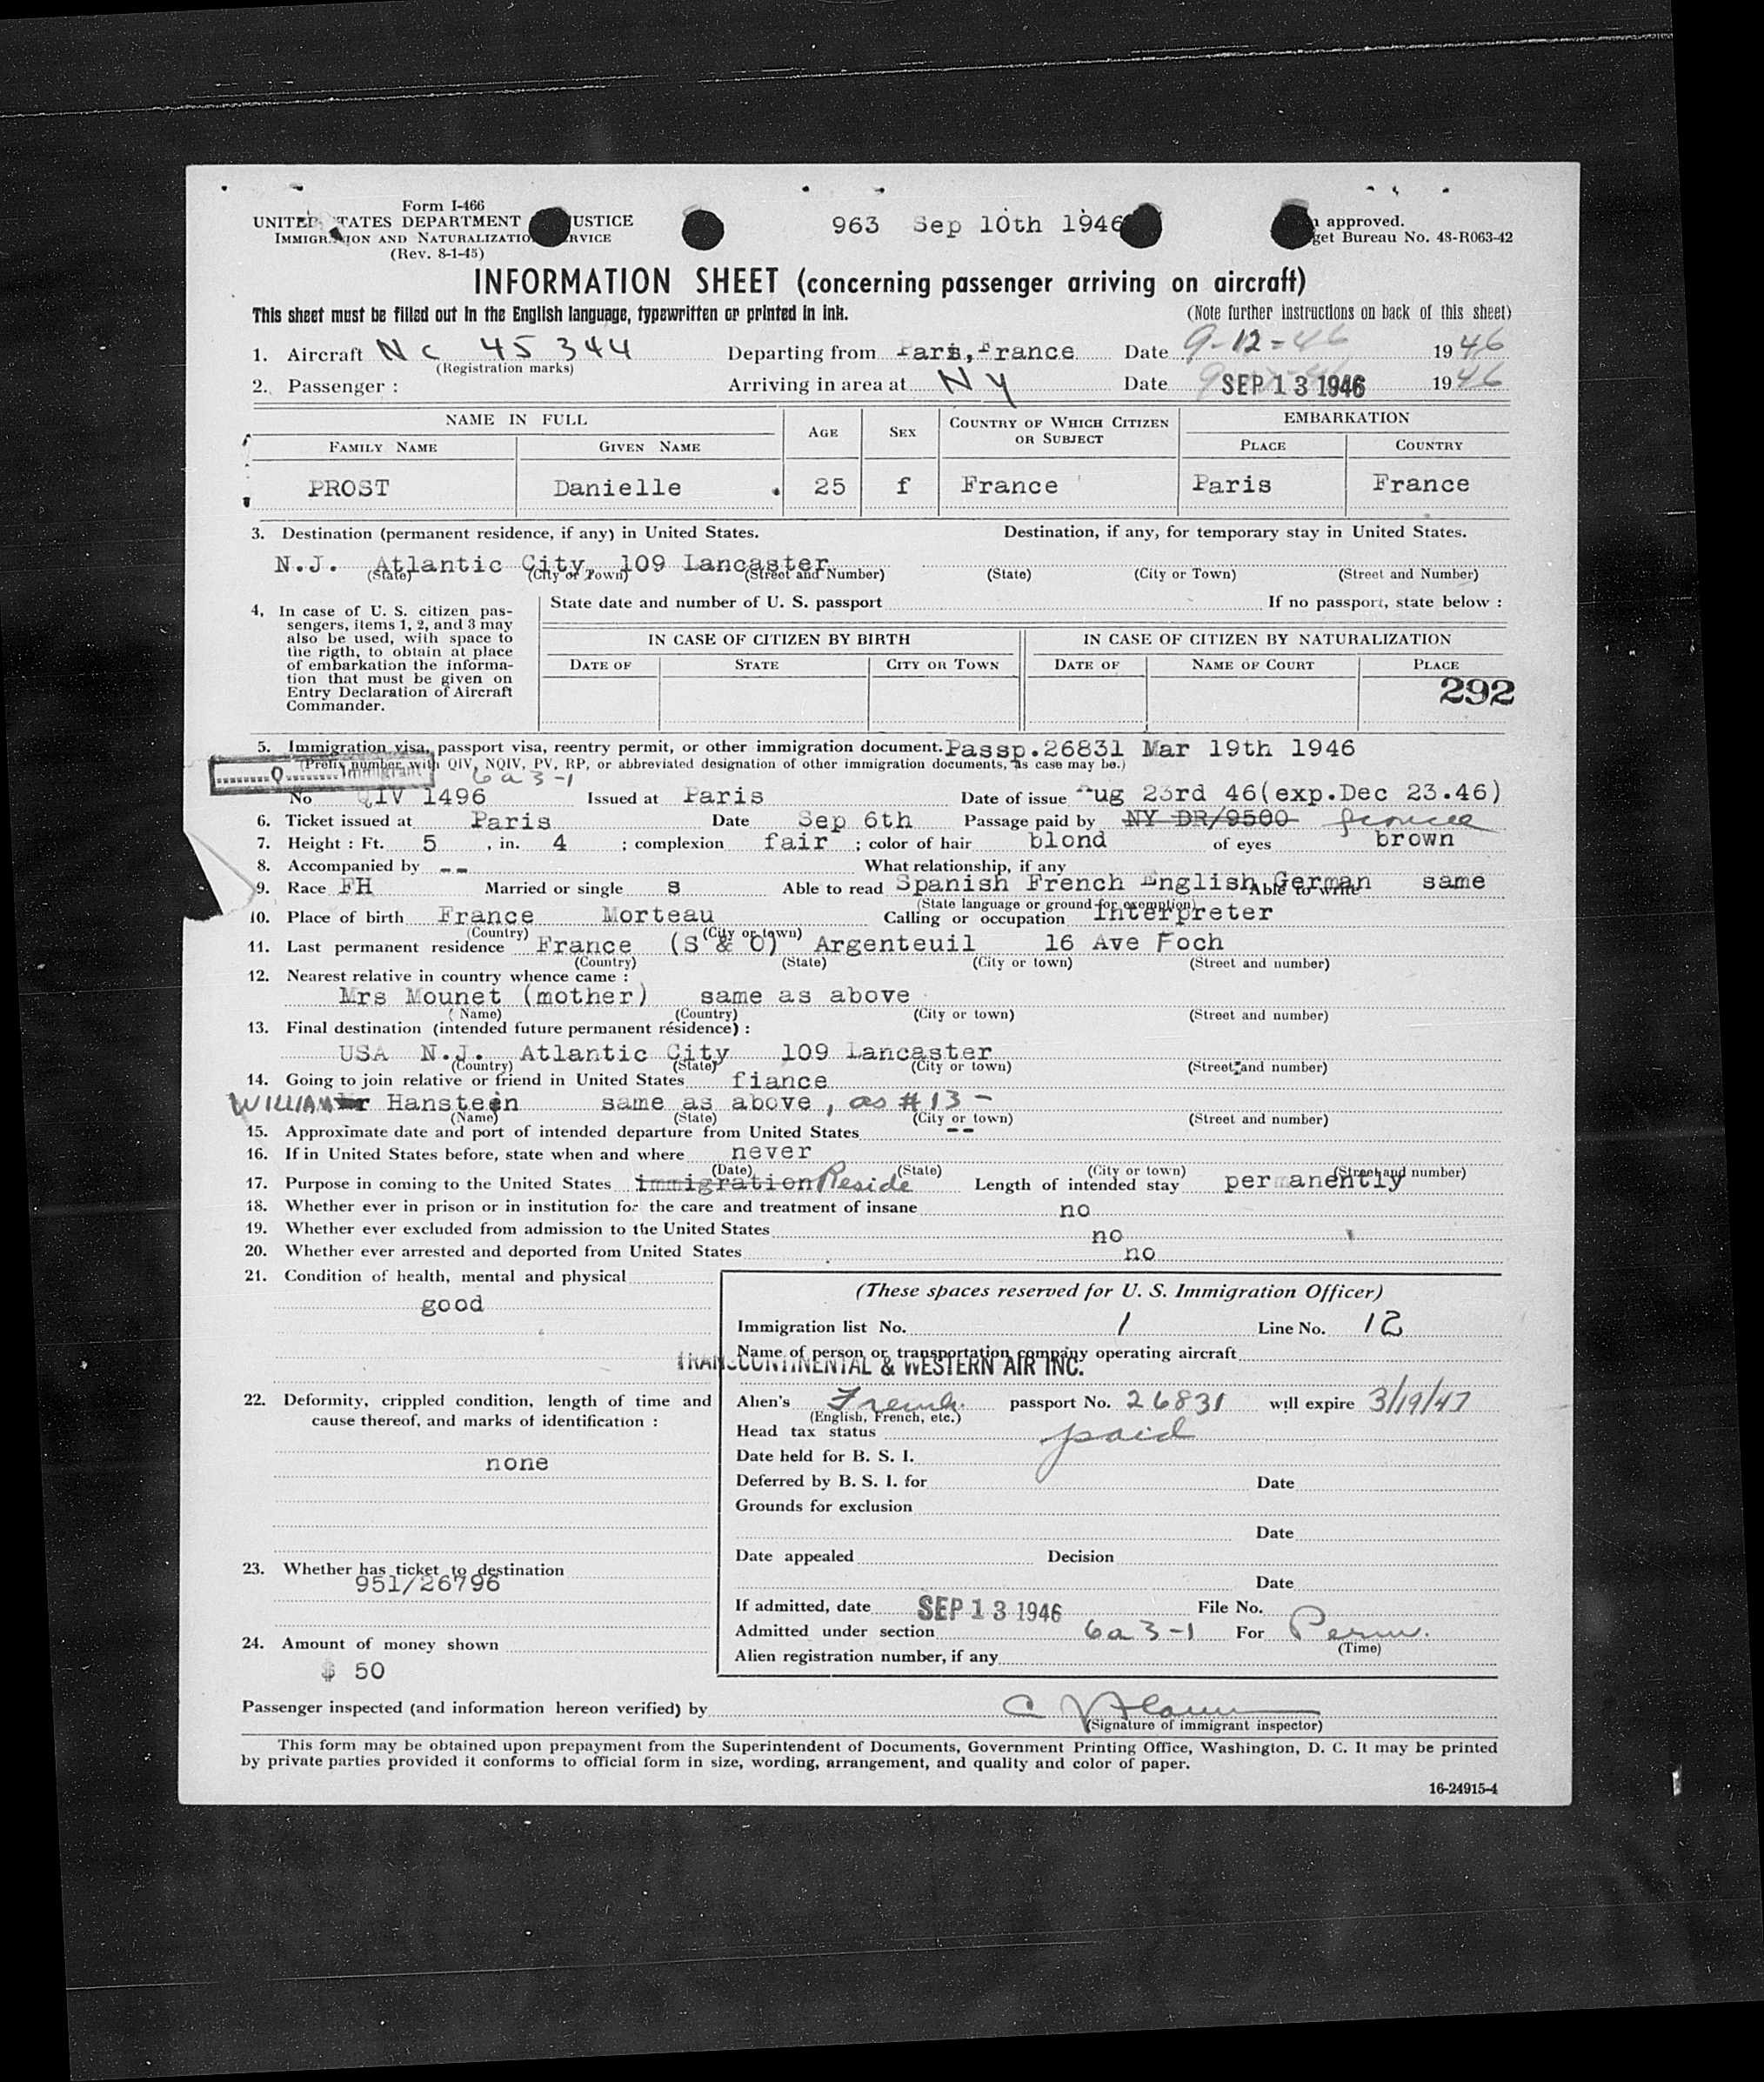 Form I-466
UNITED STATES DEPARTMENT JUSTICE
IMMIGRATION AND NATURALIZATION SERVICE
(Rev. 8-1-45)
963 Sep 10th 1946
approved.
get Bureau No. 43-R063-42
INFORMATION SHEET (concerning passenger arriving on aircraft)
This sheet must be filled out in the English language, typewritten or printed in ink.
(Note further instructions on back of this sheet)
1. Aircraft NC 45344 Departing from Paris, France Date 9-12-46 1946
(Registration marks)
2. Passenger : Arriving in area at NY Date SEP 13 1946 1946
NAME IN FULL AGE SEX COUNTRY OF WHICH CITIZEN OR SUBJECT EMBARKATION
FAMILY NAME GIVEN NAME PLACE COUNTRY
PROST Danielle . 25 f France Paris France
3. Destination (permanent residence, if any) in United States. Destination, if any, for temporary stay in United States.
N.J. Atlantic City, 109 Lancaster
(State) (City or Town) (Street and Number) (State) (City or Town) (Street and Number)
4. In case of U. S. citizen pas-
sengers, items 1, 2, and 3 may
also be used, with space to
the rigth, to obtain at place
of embarkation the informa-
tion that must be given on
Entry Declaration of Aircraft
Commander.
State date and number of U. S. passport If no passport, state below :
IN CASE OF CITIZEN BY BIRTH IN CASE OF CITIZEN BY NATURALIZATION
DATE OF STATE CITY OR TOWN DATE OF NAME OF COURT PLACE
292
5. Immigration visa, passport visa, reentry permit, or other immigration document. Passp.26831 Mar 19th 1946
(Prefix number with QIV, NQIV, PV, RP, or abbreviated designation of other immigration documents, as case may be.)
Q Immigrant 6a3-1
No QIV 1496 Issued at Paris Date of issue Aug 23rd 46(exp.Dec 23.46)
6. Ticket issued at Paris Date Sep 6th Passage paid by NY DR/9500
7. Height : Ft. 5 , in. 4 ; complexion fair ; color of hair blond of eyes brown
8. Accompanied by -- What relationship, if any
9. Race FH Married or single s Able to read Spanish French English German Able to write same
(State language or ground for exemption)
10. Place of birth France Morteau Calling or occupation Interpreter
(Country) (City or town)
11. Last permanent residence France (S & O) Argenteuil 16 Ave Foch
(Country) (State) (City or town) (Street and number)
12. Nearest relative in country whence came :
Mrs Mounet (mother) same as above
(Name) (Country) (City or town) (Street and number)
13. Final destination (intended future permanent résidence) :
USA N.J. Atlantic City 109 Lancaster
(Country) (State) (City or town) (Street and number)
14. Going to join relative or friend in United States fiance
WILLIAM Hanstein same as above, as #13 -
(Name) (State) (City or town) (Street and number)
15. Approximate date and port of intended departure from United States --
16. If in United States before, state when and where never
(Date) (State) (City or town) (Street and number)
17. Purpose in coming to the United States immigration Reside Length of intended stay permanently
18. Whether ever in prison or in institution for the care and treatment of insane no
19. Whether ever excluded from admission to the United States no
20. Whether ever arrested and deported from United States no
21. Condition of health, mental and physical
good
22. Deformity, crippled condition, length of time and
cause thereof, and marks of identification :
none
23. Whether has ticket to destination
951/26796
24. Amount of money shown
$ 50
(These spaces reserved for U. S. Immigration Officer)
Immigration list No. 1 Line No. 12
Name of person or transportation company operating aircraft
TRANSCONTINENTAL & WESTERN AIR INC.
Alien's French passport No. 26831 will expire 3/19/47
(English, French, etc.)
Head tax status paid
Date held for B. S. I.
Deferred by B. S. I. for Date
Grounds for exclusion
Date
Date appealed Decision
Date
If admitted, date SEP 13 1946 File No.
Admitted under section 6a3-1 For Perm.
(Time)
Alien registration number, if any
Passenger inspected (and information hereon verified) by
(Signature of immigrant inspector)
This form may be obtained upon prepayment from the Superintendent of Documents, Government Printing Office, Washington, D. C. It may be printed
by private parties provided it conforms to official form in size, wording, arrangement, and quality and color of paper.
16-24915-4